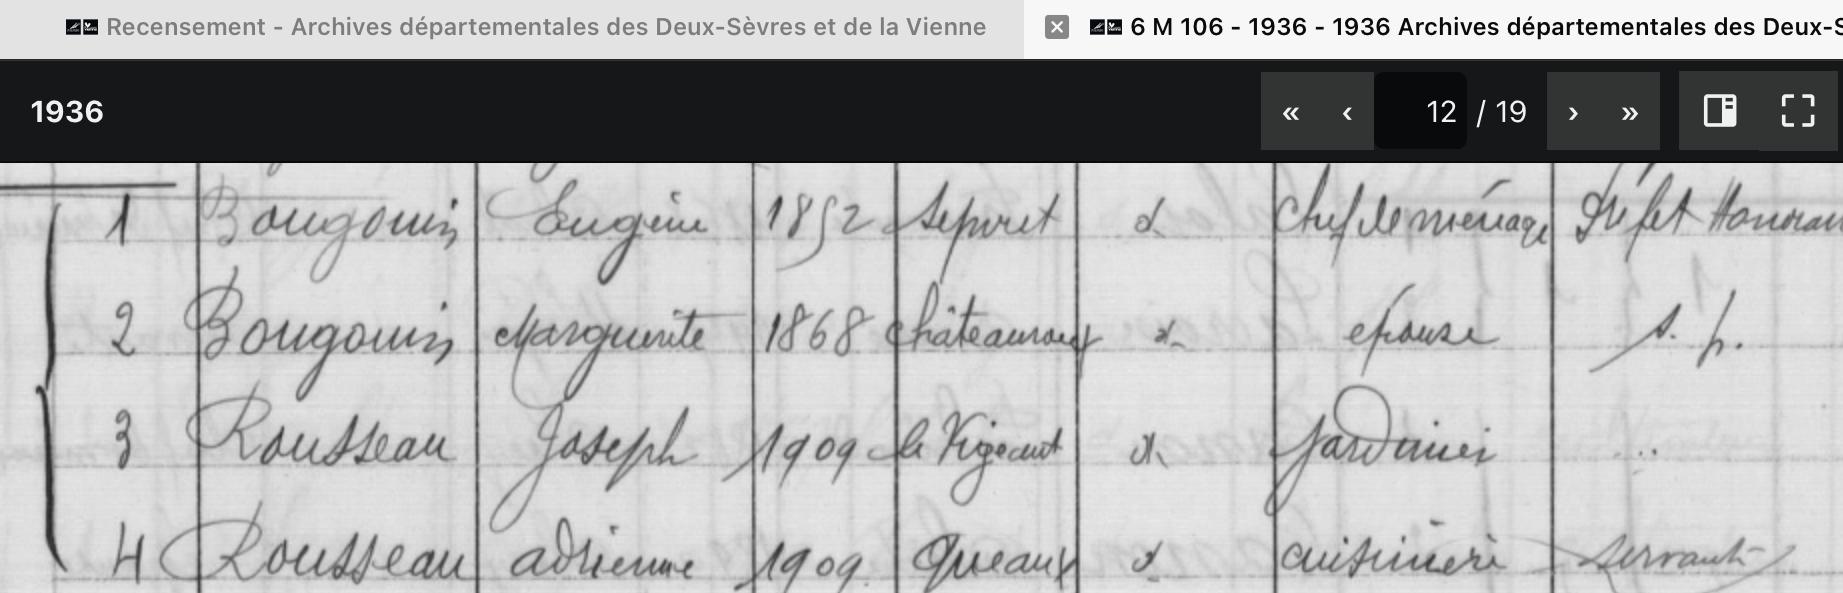 Recensement - Archives départementales des Deux-Sèvres et de la Vienne 6 M 106 - 1936 - 1936 Archives départementales des Deux-S
1936 « ‹ 12 / 19 › »
1 Bougouin Eugène 1852 Sepvret d. Chef de ménage Préfet Honorai
2 Bougouin Marguerite 1868 Châteauroux d. épouse s. p.
3 Rousseau Joseph 1909 le Vigeant d. Jardinier
4 Rousseau adrienne 1909 Queaux d. cuisinière servante